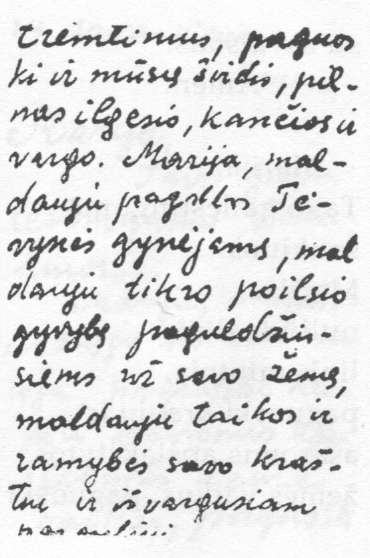 tremtinius, paguos
ki ir mūsų širdis, pil-
nas ilgesio, kančios ir
vargo. Marija, mal-
dauju pagalbos Tė-
vynės gynėjams, mal
dauju tikro poilsio
gyvybę paguldžiu-
siems už savo žemę,
maldauju taikos ir
ramybės savo kraš-
tui ir išvargusiam